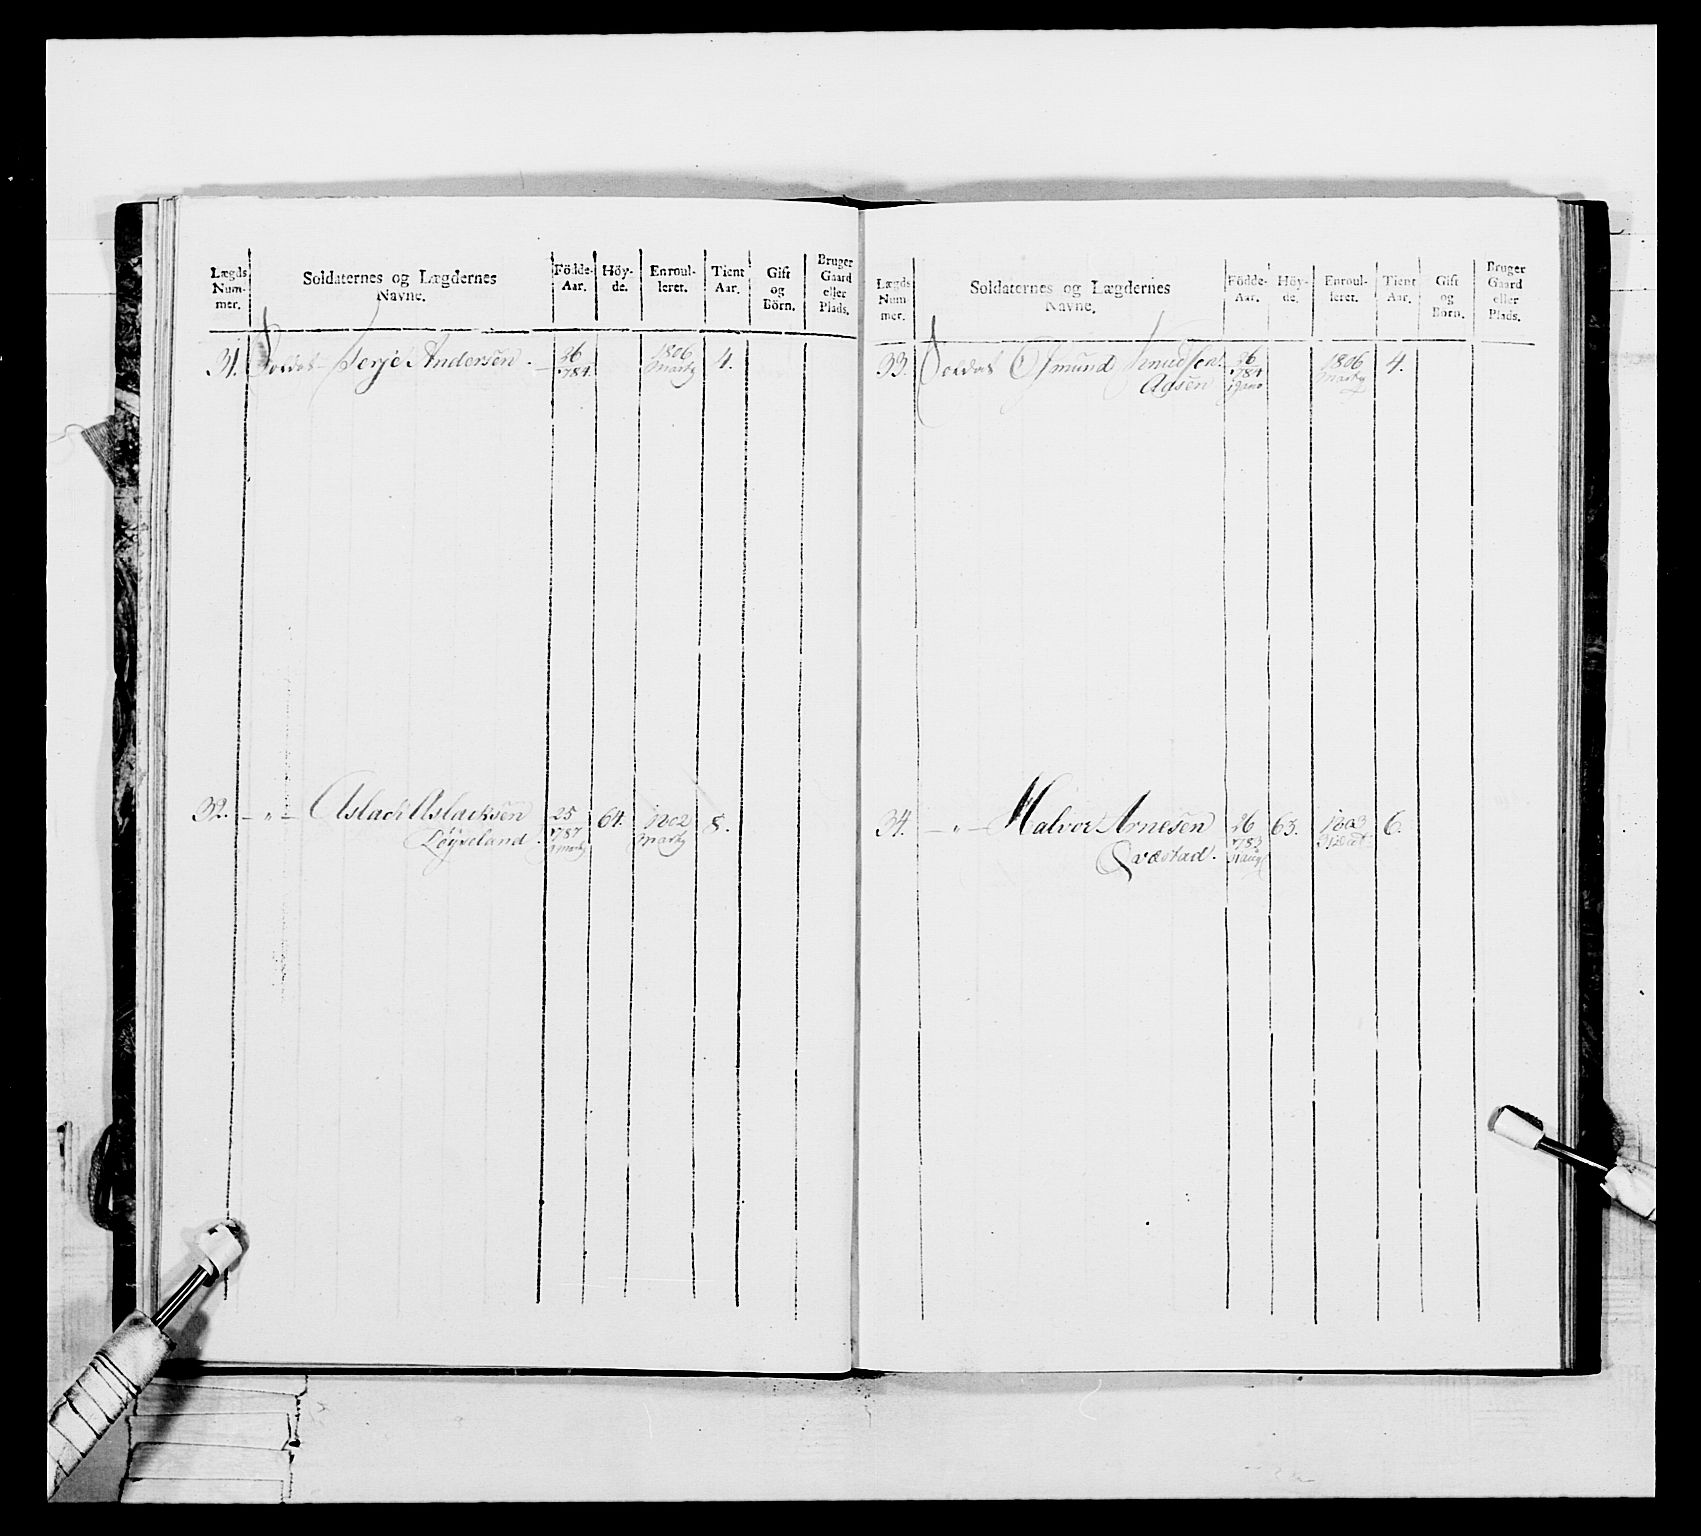 Lægds Num- mer.
Soldaternes og Lægdernes Navne.
Födde- Aar.
Höy- de.
Enroul- leret.
Tient Aar.
Gift og Börn.
Bruger Gaard eller Plads.
31. Soldat Terje Andersen. 26 1784. 1806 Marty 4.
32. — " — Aslach Aslachsen 25 64. 1802 8.
Löyseland 1787 Marty
Lægds Num mer.
Soldaternes og Lægdernes Navne.
Födde- Aar.
Höy- de.
Enroul- leret.
Tient Aar.
Gift og Börn.
Bruger Gaard eller Plads.
33. Soldat Osmund Knudsen 26 1806 4.
Aasen 1784 Marty
34. — " — Halvor Arnesen 26 63. 1803 6.
Qvæstad. 1783